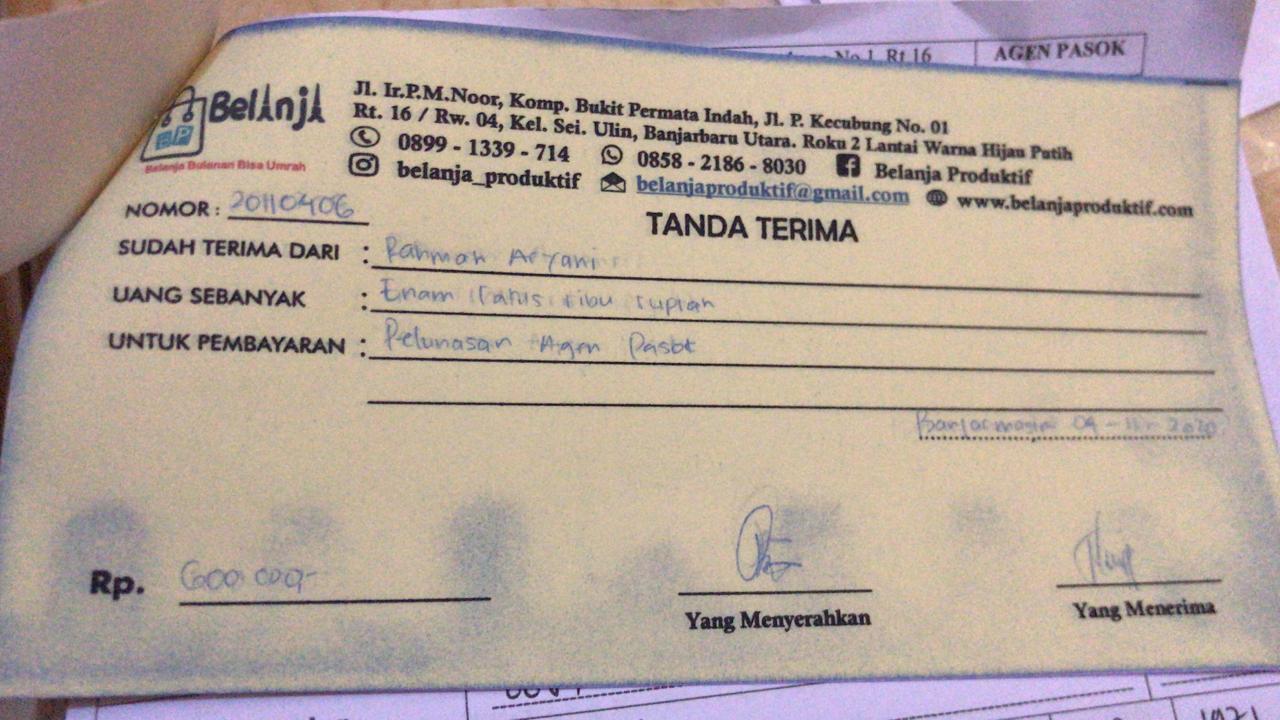 No 1 Rt.16
AGEN PASOK
BelAnjA
BP
Belanja Bulanan Bisa Umrah
Jl. Ir.P.M.Noor, Komp. Bukit Permata Indah, Jl. P. Kecubung No. 01
Rt. 16 / Rw. 04, Kel. Sei. Ulin, Banjarbaru Utara. Roku 2 Lantai Warna Hijau Putih
0899 - 1339 - 714 0858 - 2186 - 8030 Belanja Produktif
belanja_produktif belanjaproduktif@gmail.com www.belanjaproduktif.com
NOMOR : 20110406
TANDA TERIMA
SUDAH TERIMA DARI : Rahmah Aryani
UANG SEBANYAK : Enam ratus ribu rupiah
UNTUK PEMBAYARAN : Pelunasan Agen Pasok
Banjarmasin 04 - 11 - 2020
Rp. 600.000,-
Yang Menyerahkan
Yang Menerima